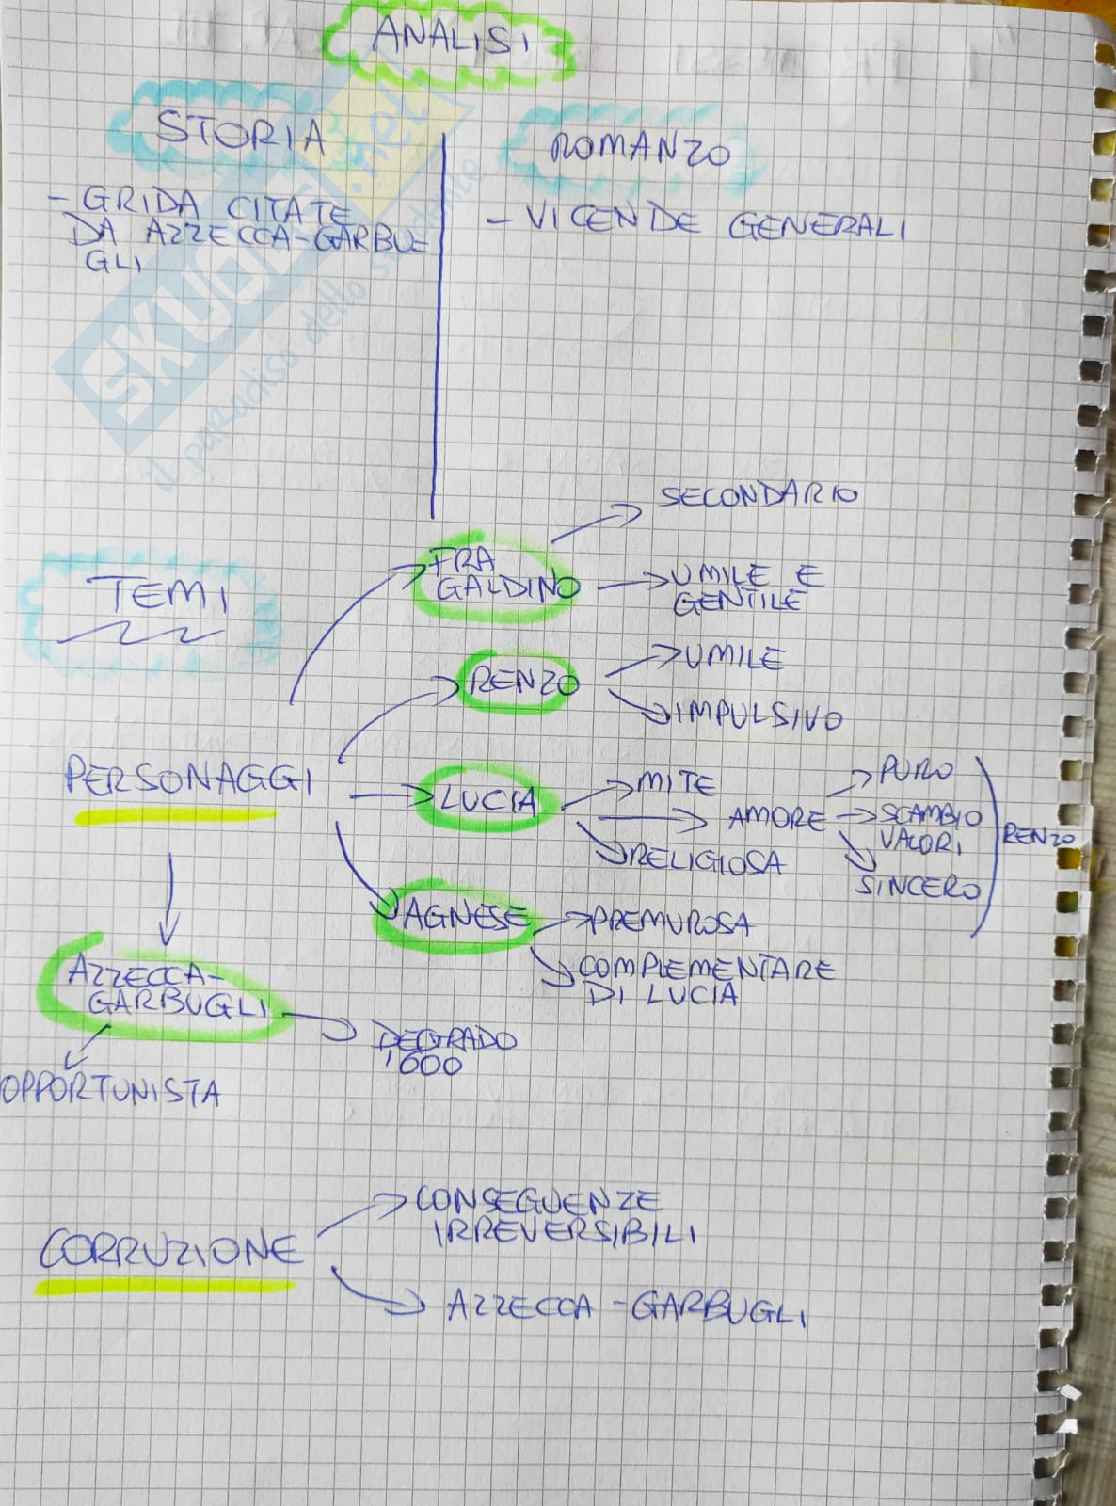 ANALISI
STORIA
ROMANZO
- GRIDA CITATE
DA AZZECCA-GARBU
GLI
- VICENDE GENERALI
SKUOLA.net
il paradiso dello studente
SECONDARIO
FRA
GALDINO
UMILE E
GENTILE
TEMI
RENZO
UMILE
IMPULSIVO
PERSONAGGI
LUCIA
MITE
AMORE
RELIGIOSA
PURO
SCAMBIO
VALORI
SINCERO
RENZO
AGNESE
PREMUROSA
COMPLEMENTARE
DI LUCIA
AZZECCA-
GARBUGLI
DEGRADO
'600
OPPORTUNISTA
CORRUZIONE
CONSEGUENZE
IRREVERSIBILI
AZZECCA-GARBUGLI